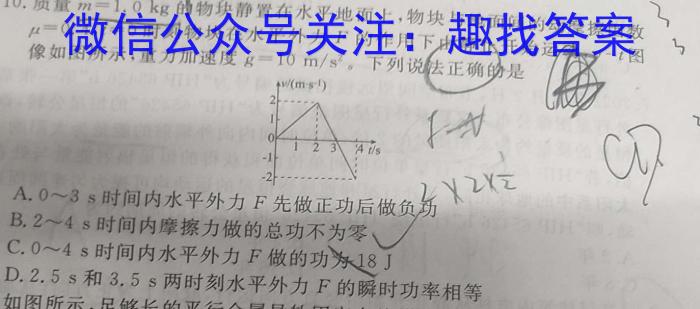 10. 质量 m=1.0 kg 的物块静置在水平地面上,物块与
微信公众号关注：趣找答案
像如图所示,重力加速度 g=10 m/s²。下列说法正确的是
v/(m·s⁻¹)
2
1
0 1 2 3 4 t/s
-1
-2
A. 0～3 s 时间内水平外力 F 先做正功后做负功
B. 2～4 s 时间内摩擦力做的总功不为零
C. 0～4 s 时间内水平外力 F 做的功为 18 J
D. 2.5 s 和 3.5 s 两时刻水平外力 F 的瞬时功率相等
如图所示,足够长的平行金属导轨固定